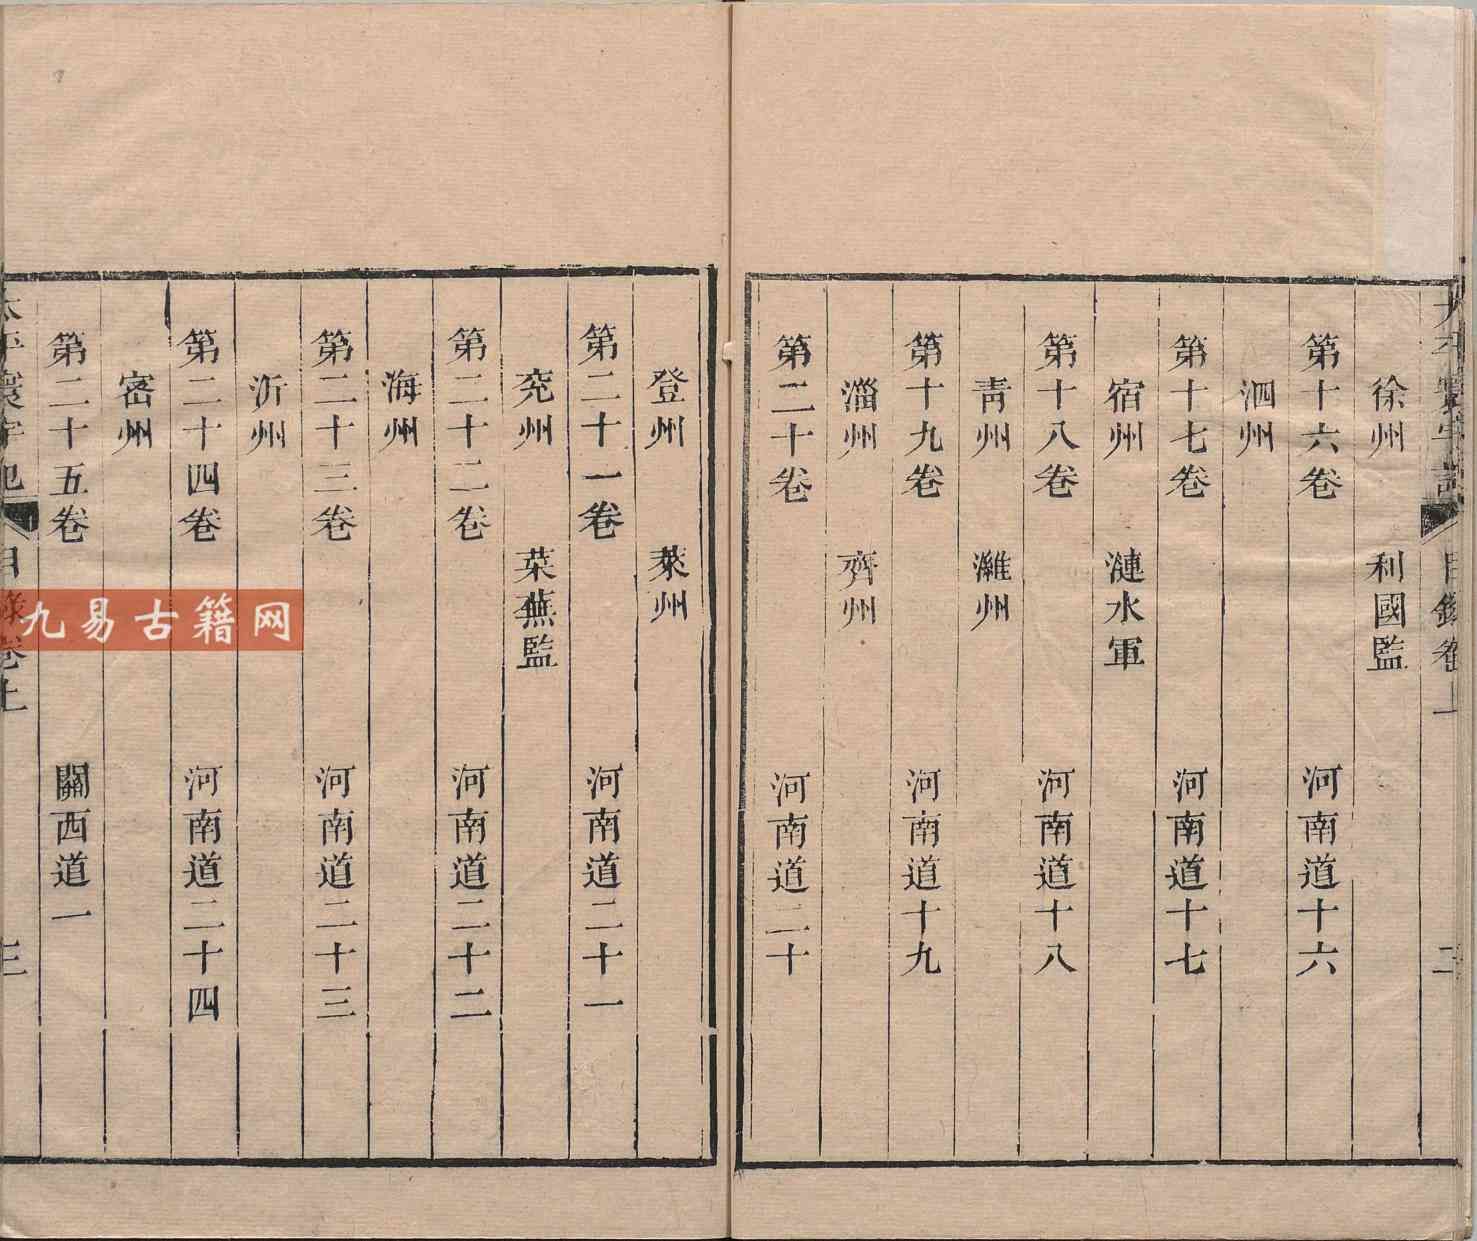 太平寰宇記 目錄卷上 二
徐州 利國監
第十六卷 河南道十六
泗州
第十七卷 河南道十七
宿州 漣水軍
第十八卷 河南道十八
青州 濰州
第十九卷 河南道十九
淄州 齊州
第二十卷 河南道二十
登州 萊州
第二十一卷 河南道二十一
兖州 萊蕪監
第二十二卷 河南道二十二
海州
第二十三卷 河南道二十三
沂州
第二十四卷 河南道二十四
密州
第二十五卷 關西道一
太平寰宇記 目錄卷上 三
九易古籍网